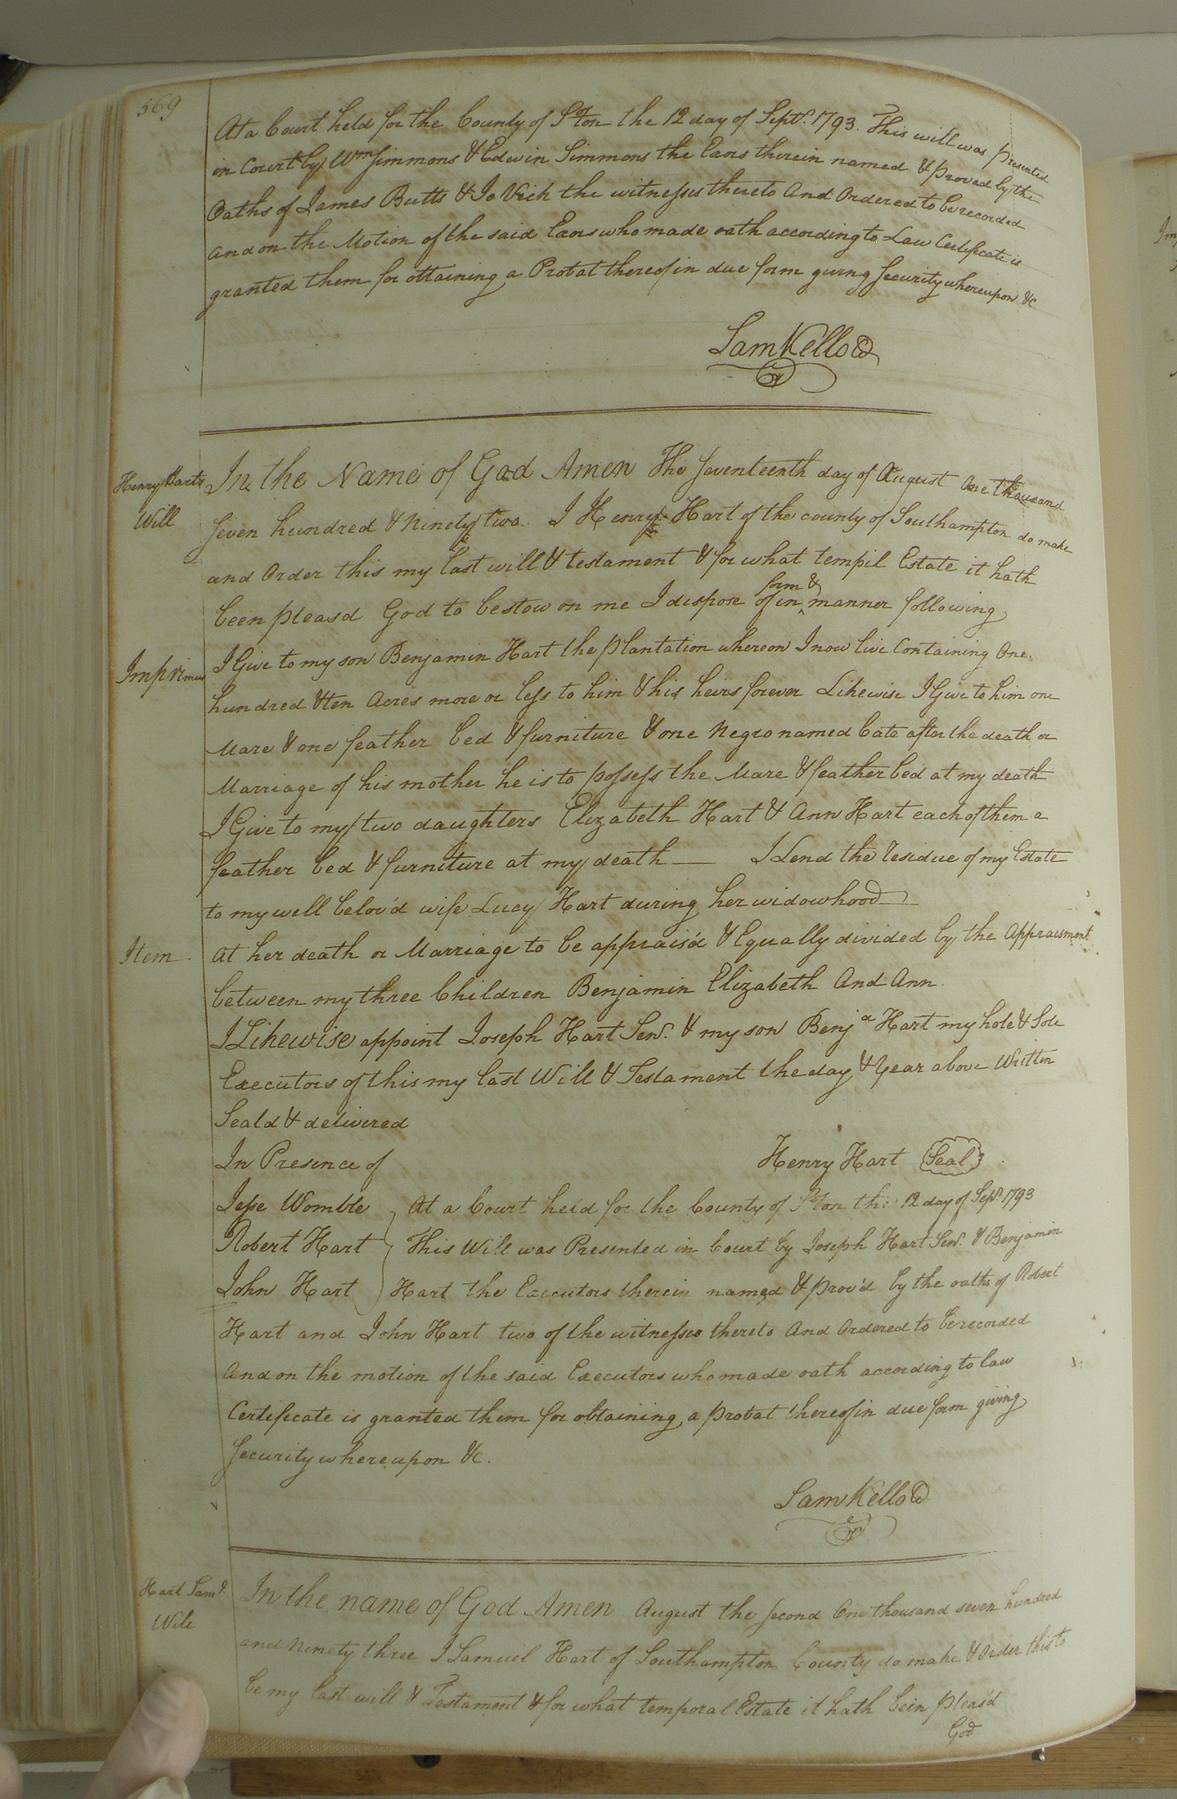 569
At a Court held for the County of S°ton the 12 day of Sept.r 1793. This will was presented
in Court by Wm Simmons & Edwin Simmons the Exors therein named & proved by the
Oaths of James Butts & Jo Vick the witnesses thereto And Ordered to be recorded
and on the Motion of the said Exors who made oath according to Law Certificate is
granted them for obtaining a Probat thereof in due form giving Security whereupon &c
Sam Kello
Henry Harts In the Name of God Amen The Seventeenth day of August One thousand
Will Seven hundred & Ninety two I Henry Hart of the county of Southampton do make
and Order this my last will & testament & for what tempil Estate it hath
been pleasd God to bestow on me I dispose of in form & manner following
Imprimus I Give to my son Benjamin Hart the plantation whereon I now live Containing One
hundred & ten Acres more or less to him & his heirs forever Likewise I Give to him one
Mare & one feather bed & furniture & one Negro named Cate after the death or
Marriage of his mother he is to possess the Mare & feather bed at my death
I Give to my two daughters Elizabeth Hart & Ann Hart each of them a
feather bed & furniture at my death — I Lend the Resdue of my Estate
to my well belov'd wife Lucy Hart during her widowhood
Item at her death or Marriage to be apprais'd & Equally divided by the Appraisment
between my three Children Benjamin Elizabeth And Ann.
I Likewise appoint Joseph Hart Senr. & my son Benja Hart my hole & Sole
Executors of this my last Will & Testament the day & Year above Written
Seald & delivered
In Presence of Henry Hart Seal
Jesse Womble At a Court held for the County of S°ton the 12 day of Sept 1793
Robert Hart This Will was Presented in Court by Joseph Hart Senr. & Benjamin
John Hart Hart the Executors therein named & prov'd by the oaths of Robert
Hart and John Hart two of the witnesses thereto And Ordered to be recorded
And on the motion of the said Executors who made oath according to law
Certificate is granted them for obtaining a probat thereof in due form giving
Security whereupon &c.
Sam Kello
Hart Saml. In the name of God Amen August the second One thousand seven hundred
Will and Ninety three I Samuel Hart of Southampton County do make & Order this to
be my last will & Testament & for what temporal Estate it hath bein pleas'd
God